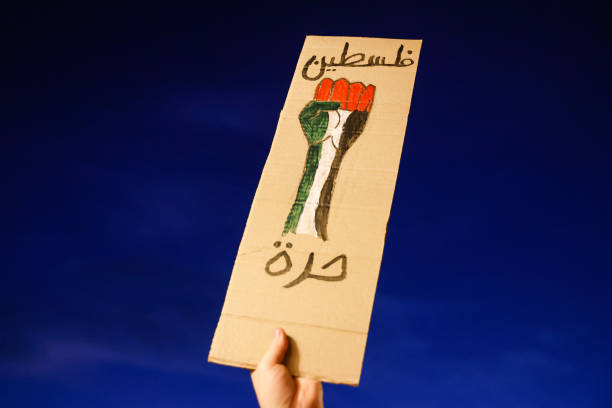 فلسطين
حرة